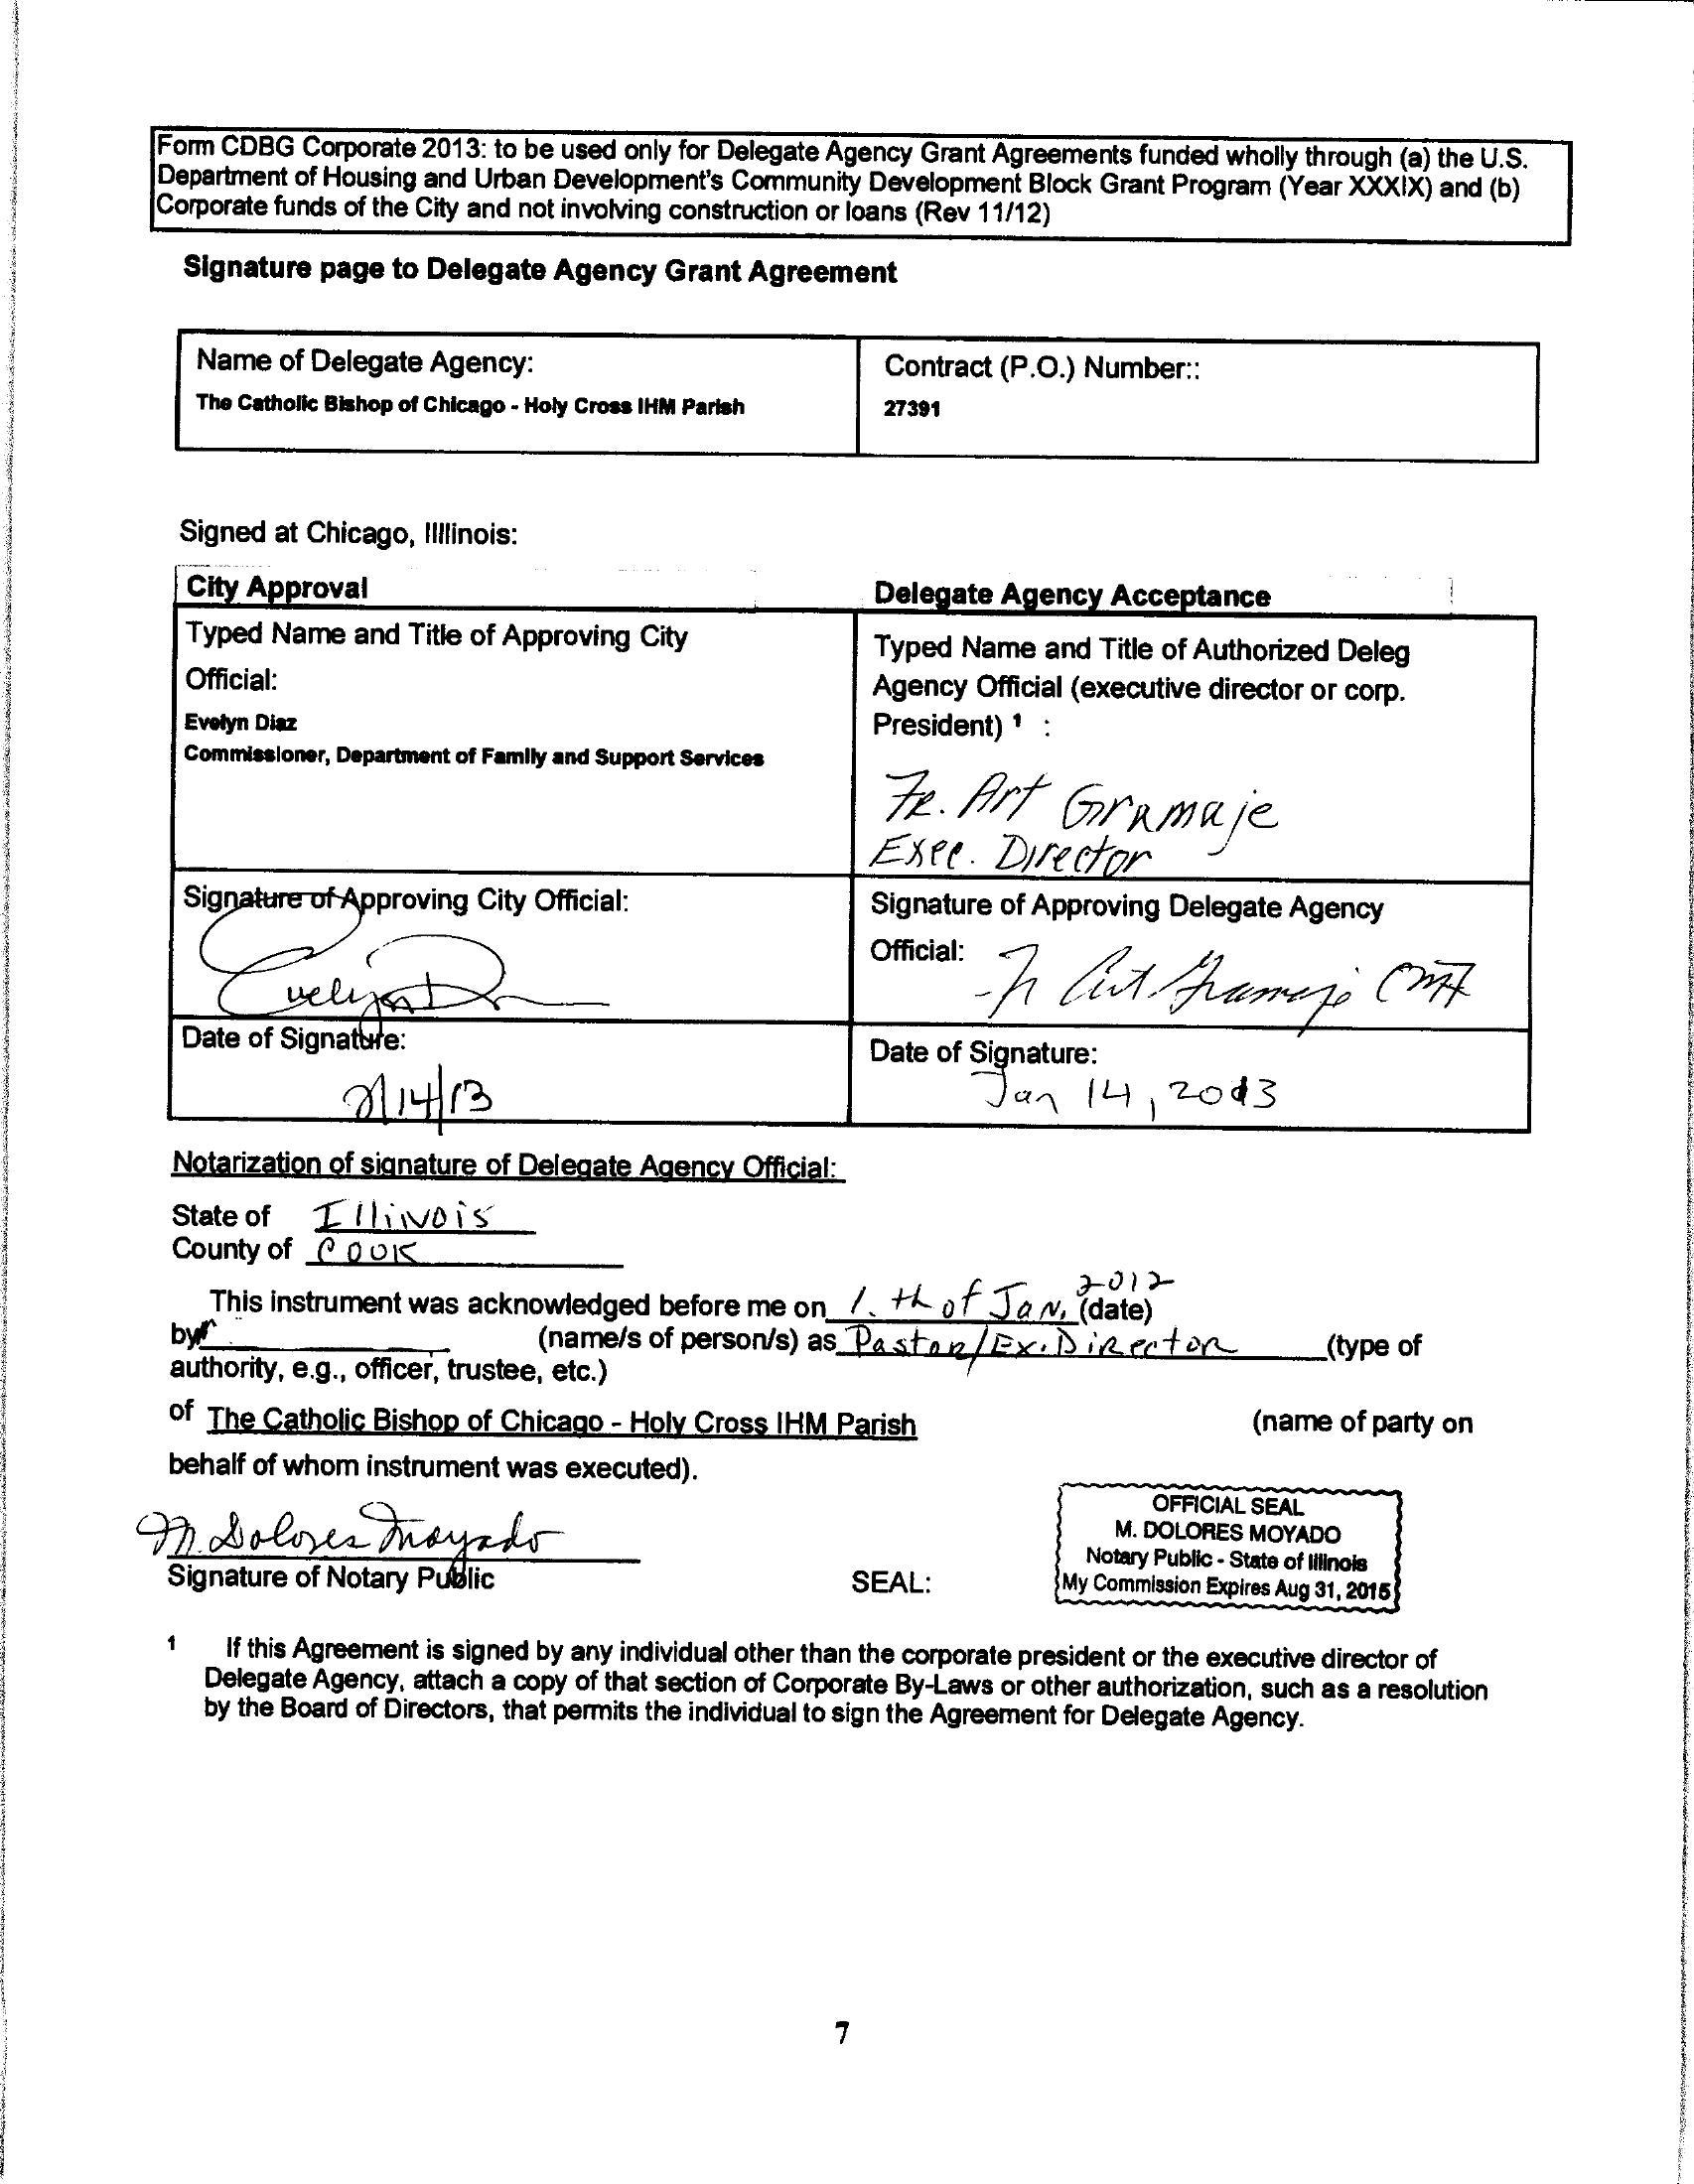 Form CDBG Corporate 2013: to be used only for Delegate Agency Grant Agreements funded wholly through (a) the U.S.
Department of Housing and Urban Development's Community Development Block Grant Program (Year XXXIX) and (b)
Corporate funds of the City and not involving construction or loans (Rev 11/12)
Signature page to Delegate Agency Grant Agreement
Name of Delegate Agency:
The Catholic Bishop of Chicago - Holy Cross IHM Parish
Contract (P.O.) Number::
27391
Signed at Chicago, Illlinois:
City Approval
Delegate Agency Acceptance
Typed Name and Title of Approving City
Official:
Evelyn Diaz
Commissioner, Department of Family and Support Services
Typed Name and Title of Authorized Deleg
Agency Official (executive director or corp.
President) 1 :
Fr. Art Gramaje
Exec. Director
Signature of Approving City Official:
Evelyn D
Signature of Approving Delegate Agency
Official:
Fr Art Gramaje CMF
Date of Signature:
2/14/13
Date of Signature:
Jan 14, 2013
Notarization of signature of Delegate Agency Official:
State of Illinois
County of Cook
2012
This instrument was acknowledged before me on 1. th of Jan. (date)
by (name/s of person/s) as Pastor/Ex. Director (type of
authority, e.g., officer, trustee, etc.)
of The Catholic Bishop of Chicago - Holy Cross IHM Parish (name of party on
behalf of whom instrument was executed).
M. Dolores Moyado
Signature of Notary Public
SEAL:
OFFICIAL SEAL
M. DOLORES MOYADO
Notary Public - State of Illinois
My Commission Expires Aug 31, 2015
1 If this Agreement is signed by any individual other than the corporate president or the executive director of
Delegate Agency, attach a copy of that section of Corporate By-Laws or other authorization, such as a resolution
by the Board of Directors, that permits the individual to sign the Agreement for Delegate Agency.
7